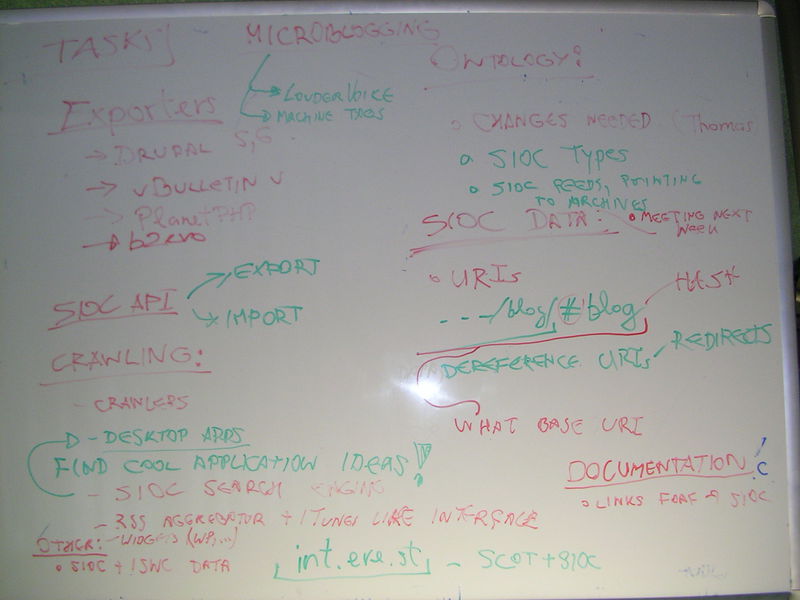 TASKS
MICROBLOGGING
→ LOUDERVOICE
→ MACHINE TAGS
Exporters
→ DRUPAL 5,6
→ vBULLETIN v
→ PlanetPHP
→ b2evo
SIOC API
→ EXPORT
→ IMPORT
CRAWLING:
- CRAWLERS
D - DESKTOP APPS
FIND COOL APPLICATION IDEAS!
- SIOC SEARCH ENGINE
- RSS AGGREGATOR + ITUNES LIKE INTERFACE
OTHER: - WIDGETS (WP,...)
o SIOC + ISWC DATA
int.ere.st - SCOT + SIOC
ONTOLOGY:
o CHANGES NEEDED (Thomas
o SIOC TYPES
o SIOC FEEDS, POINTING
TO ARCHIVES
SIOC DATA: o MEETING NEXT
WEEK
o URIs
---/blog/#blog HASH
DEREFERENCE URIs REDIRECTS
WHAT BASE URI
DOCUMENTATION: C
o LINKS FOAF → SIOC